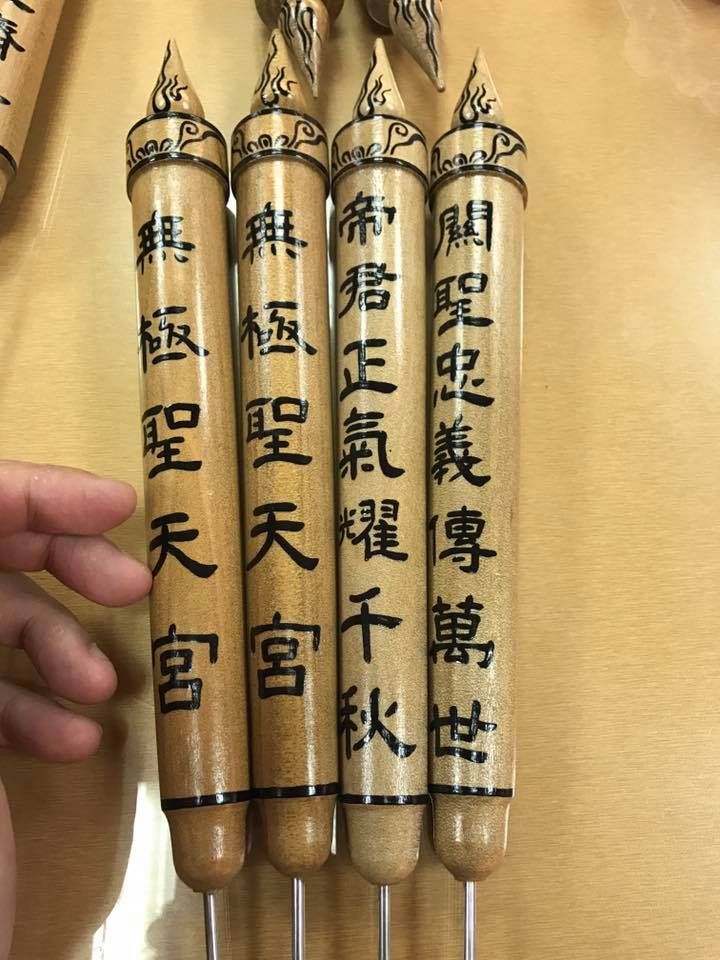 關聖忠義傳萬世
帝君正氣耀千秋
無極聖天宮
無極聖天宮